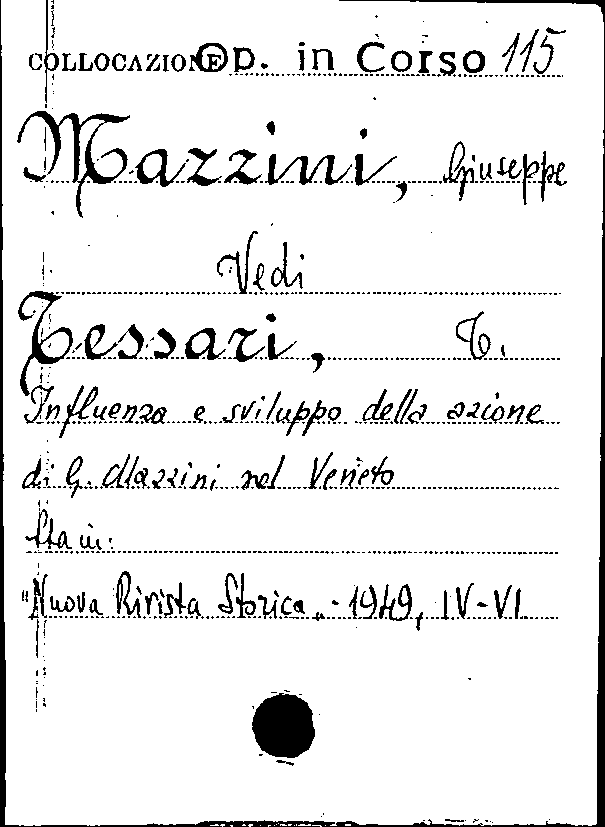 COLLOCAZIONE Op. in Corso 115
Mazzini, Giuseppe
Vedi
Tessari, T.
Influenza e sviluppo della azione
di G. Mazzini nel Veneto
Sta in:
"Nuova Rivista Storica„ - 1949, IV-VI